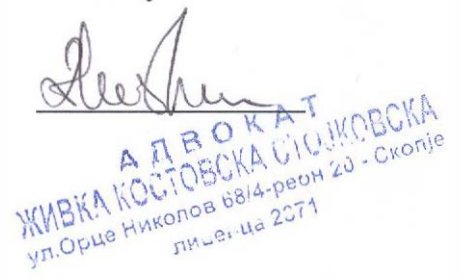 АДВОКАТ
ЖИВКА КОСТОВСКА СТОЈКОВСКА
ул.Орце Николов 68/4-реон 20 - Скопје
лиценца 2071